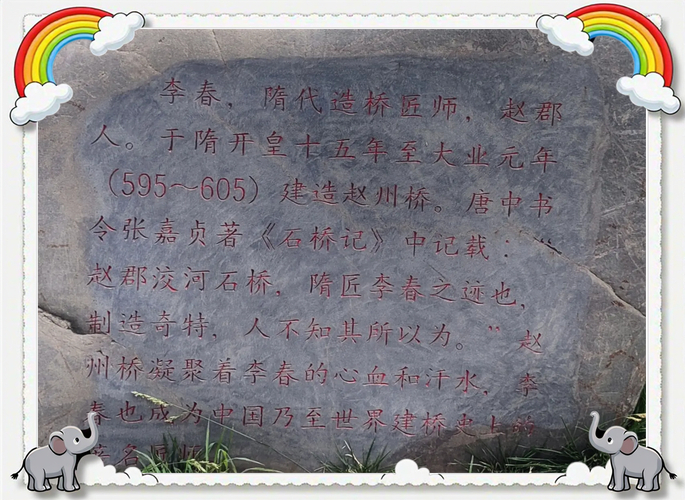 李春，隋代造桥匠师，赵郡
人。于隋开皇十五年至大业元年
（595～605）建造赵州桥。唐中书
令张嘉贞著《石桥记》中记载：“
赵郡洨河石桥，隋匠李春之迹也，
制造奇特，人不知其所以为。”赵
州桥凝聚着李春的心血和汗水，李
春也成为中国乃至世界建桥史上的
著名匠师